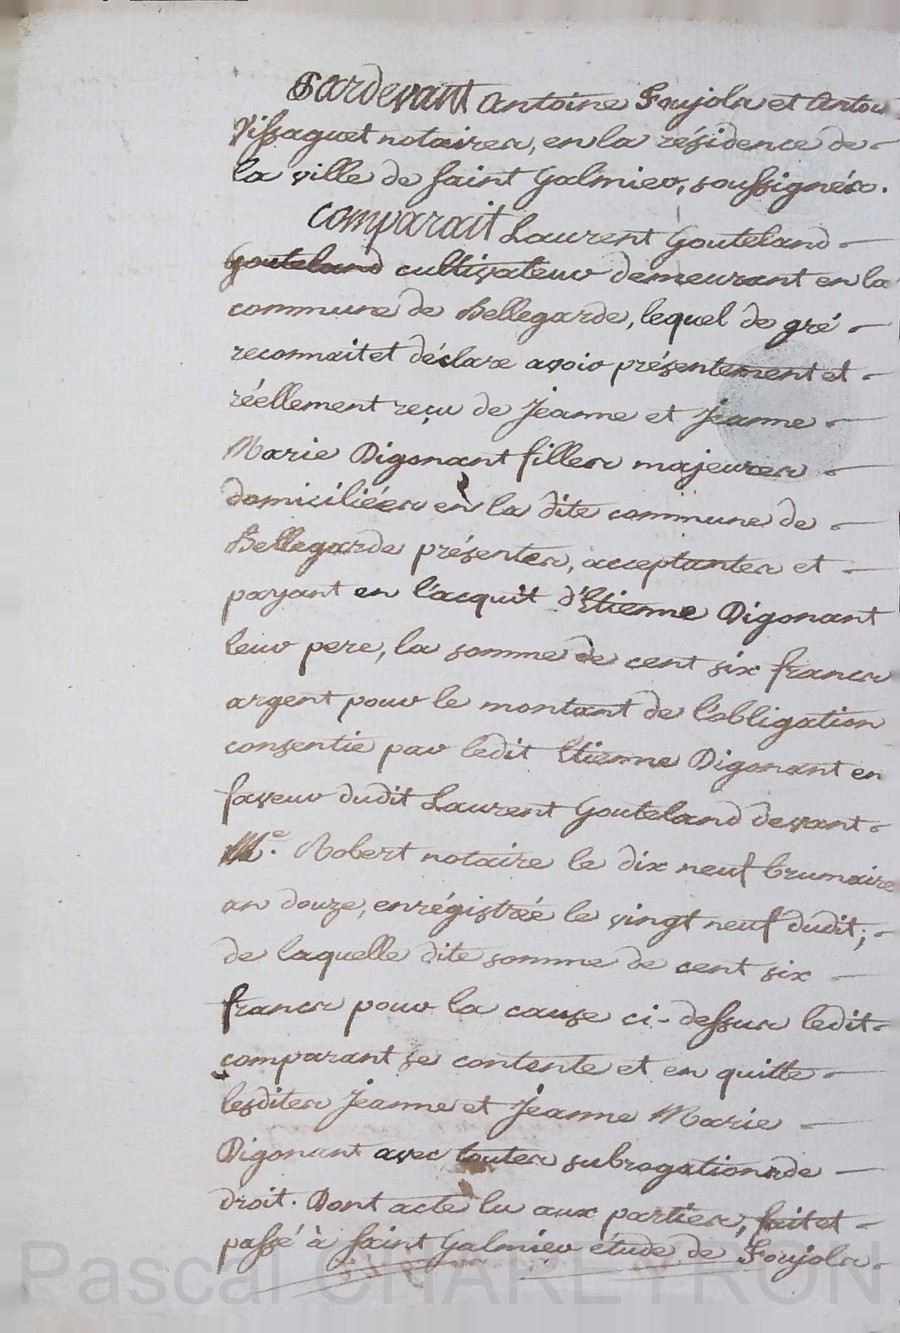 Pardevant Antoine Foujols et Antoi
Vissaguet notaires, en la résidence de
la ville de saint Galmier, soussignés.
Comparait Laurent Gouteland
Gouteland cultivateur demeurant en la
commune de Bellegarde, lequel de gré
reconnait et déclare avoir présentement et
réellement reçu de Jeanne et Jeanne
Marie Digonant filles majeures
domiciliées en la dite commune de
Bellegarde présentes, acceptantes et
payant en l'acquit d'Etienne Digonant
leur pere, la somme de cent six francs
argent pour le montant de l'obligation
consentie par ledit Etienne Digonant en
faveur dudit Laurent Gouteland devant
Me. Robert notaire le dix neuf brumaire
an douze, enrégistrée le vingt neuf dudit;
de laquelle dite somme de cent six
francs pour la cause ci-dessus ledit
comparant se contente et en quitte
lesdites Jeanne et Jeanne Marie
Digonant avec toutes subrogations de
droit. Dont acte lu aux parties, fait et
passé à saint Galmier étude de Foujols.
Pascal CHAREYRON